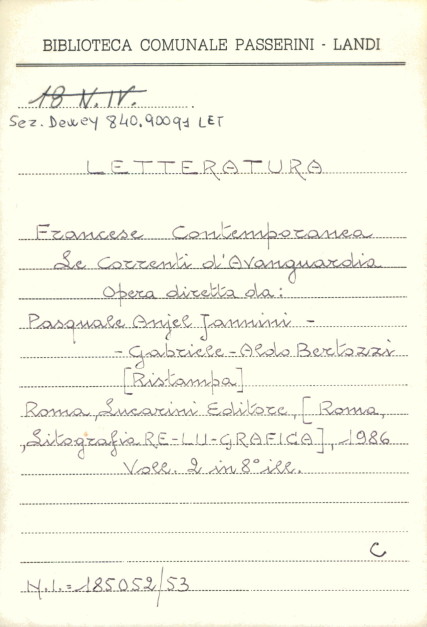 BIBLIOTECA COMUNALE PASSERINI - LANDI
18 N.IV.
Sez. Dewey 840.90091 LET
LETTERATURA
Francese Contemporanea
Le Correnti d'Avanguardia
Opera diretta da:
Pasquale Anjel Jannini -
- Gabriele-Aldo Bertozzi
[Ristampa]
Roma, Lucarini Editore, [Roma,
Litografia RE-LU-GRAFICA], 1986
Voll. 2 in 8° ill.
C
N.I.= 185052/53